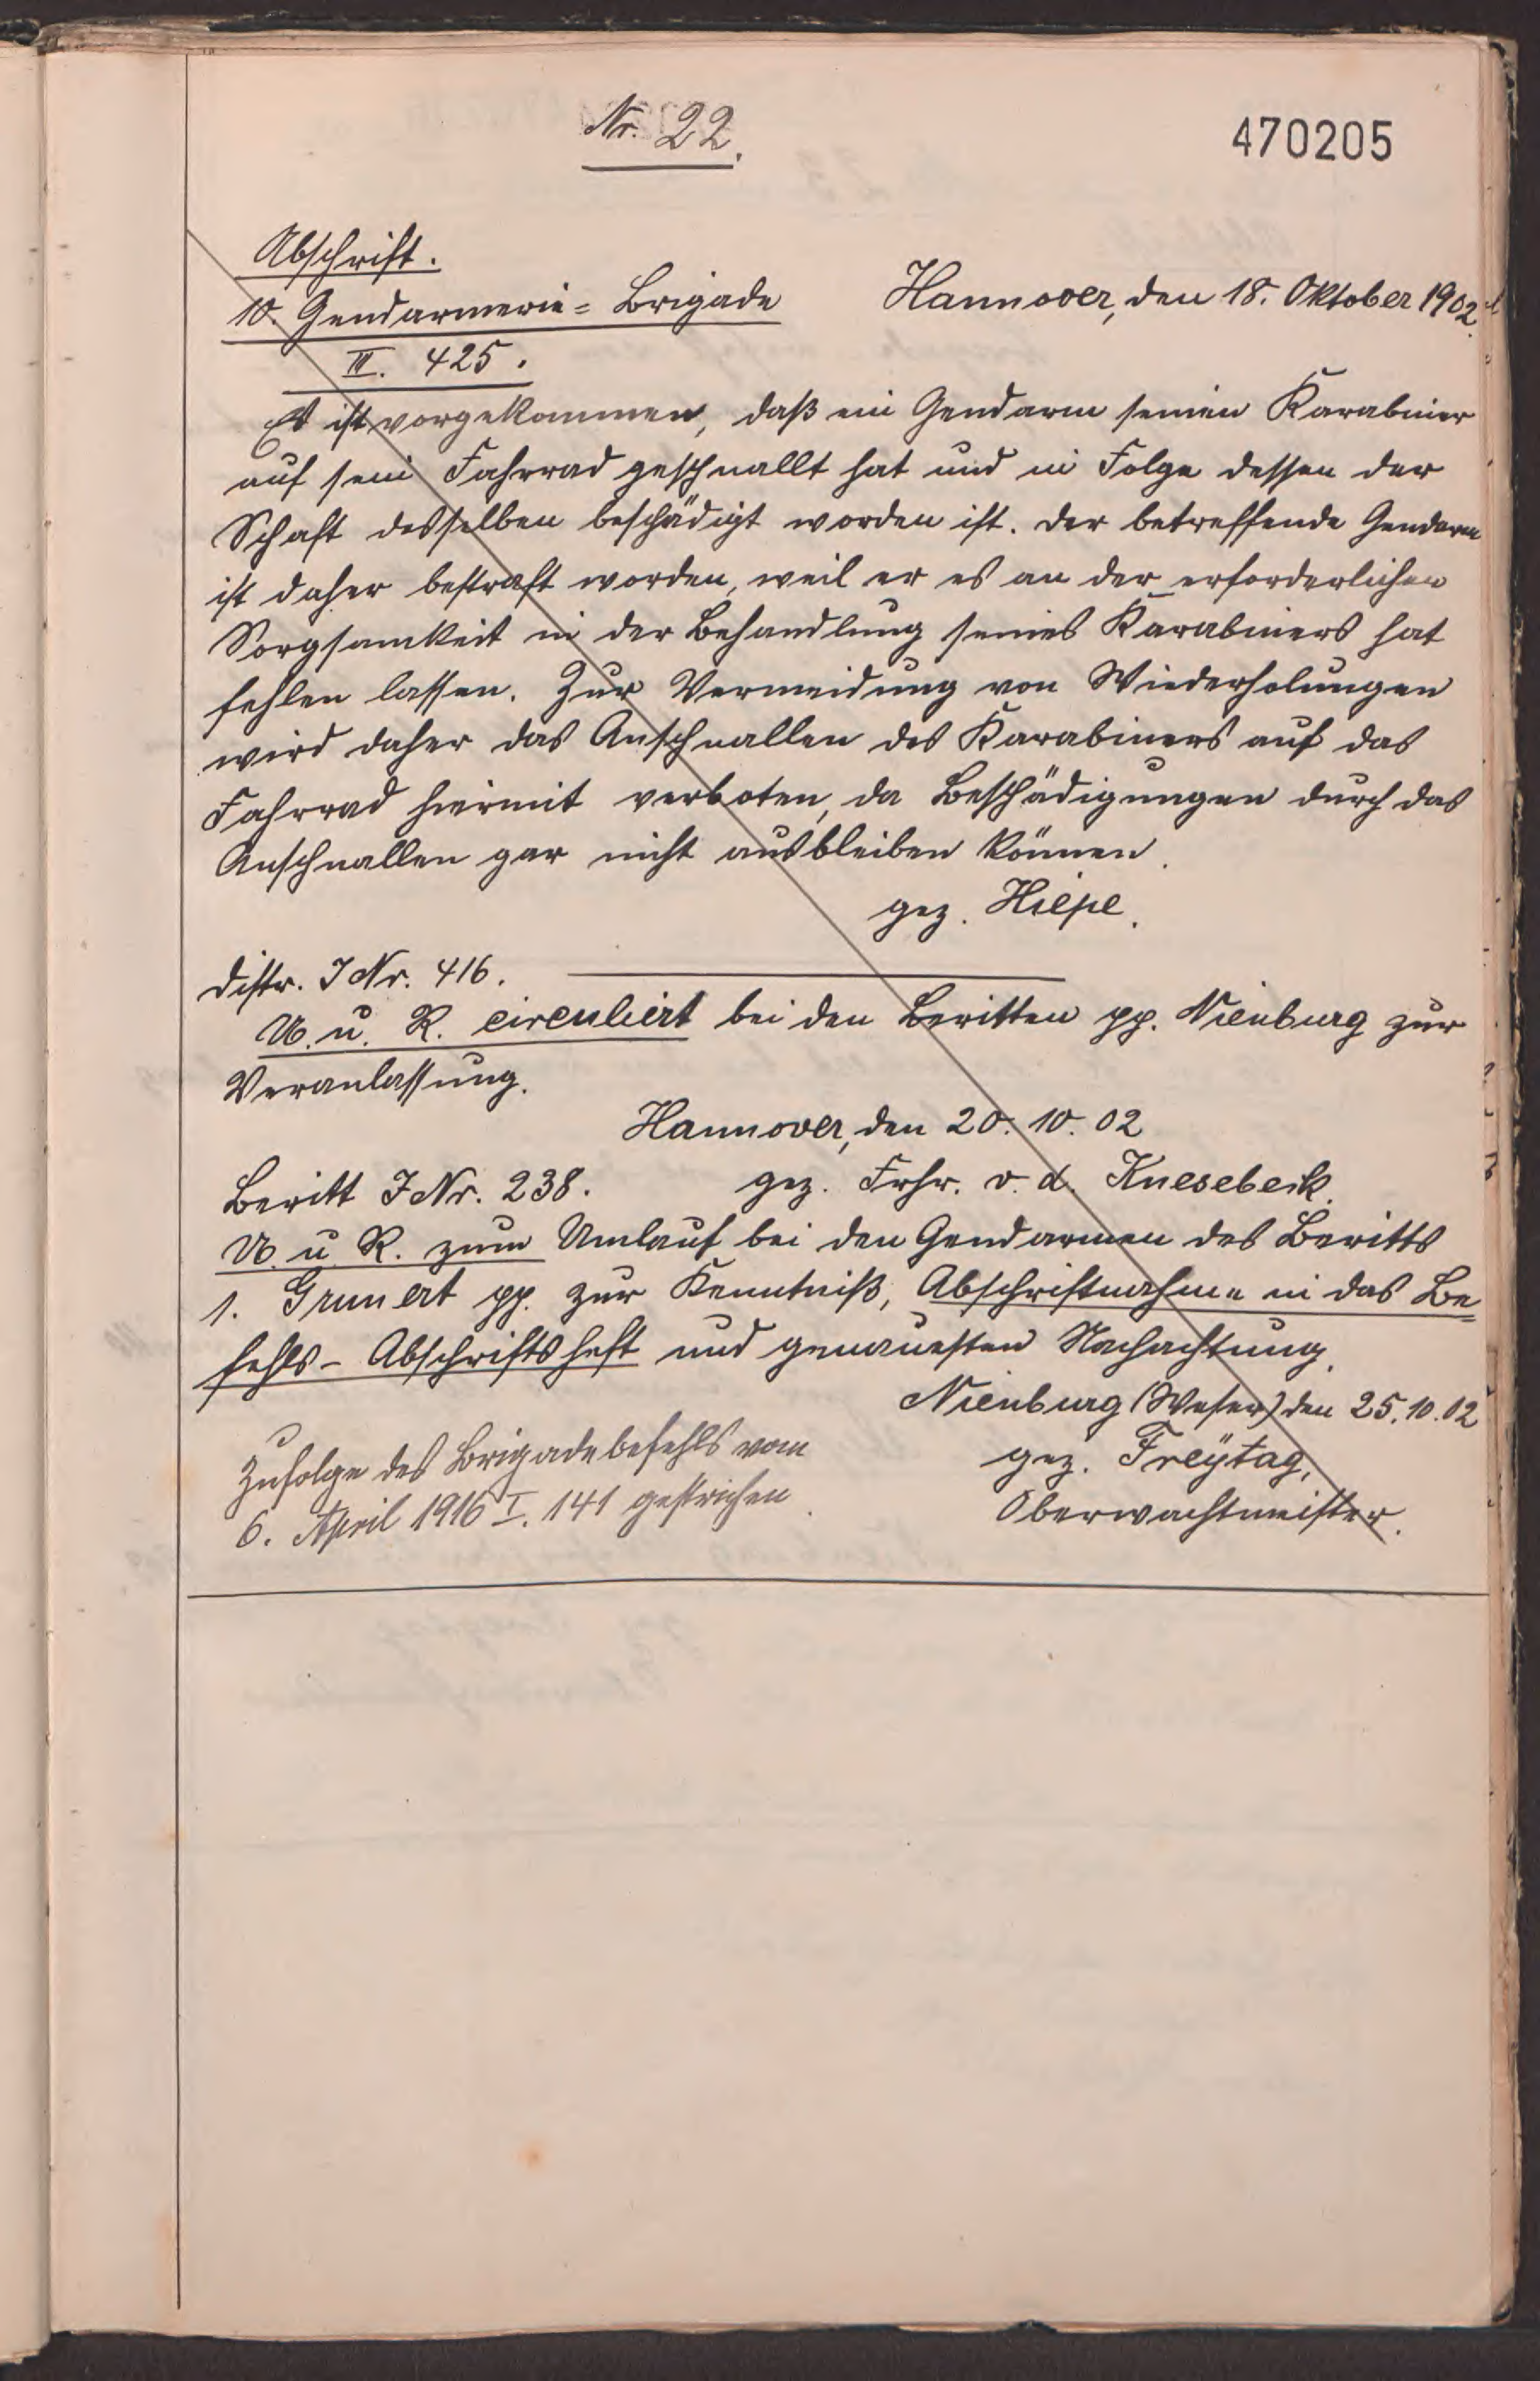 Nr. 22.
470205
Abschrift.
10. Gendarmerie=Brigade Hannover, den 18. Oktober 1902.
III. 425.
Es ist vorgekommen, daß ein Gendarm seinen Karabiner
auf sein Fahrrad geschnallt hat und in Folge dessen der
Schaft desselben beschädigt worden ist. Der betreffende Gendarm
ist daher bestraft worden, weil er es an der erforderlichen
Sorgsamkeit in der Behandlung seines Karabiners hat
fehlen lassen. Zur Vermeidung von Wiederholungen
wird daher das Anschnallen des Karabiners auf das
Fahrrad hiermit verboten, da Beschädigungen durch das
Anschnallen gar nicht ausbleiben können.
gez. Hiepe.
Distr. J Nr. 416.
U. u. R. circuliert bei den Beritten pp. Nienburg zur
Veranlassung.
Hannover, den 20. 10. 02
Beritt J Nr. 238. gez. Frhr. v. d. Knesebeck.
U. u. R. zum Umlauf bei den Gendarmen des Beritts
1. Grunert pp. zur Kenntniß, Abschriftnahme in das Be=
fehls-Abschriftsheft und genauesten Nachachtung.
Nienburg (Weser) den 25. 10. 02
gez. Freytag,
Oberwachtmeister.
Zufolge des Brigadebefehls vom
6. April 1916 I. 141 gestrichen.